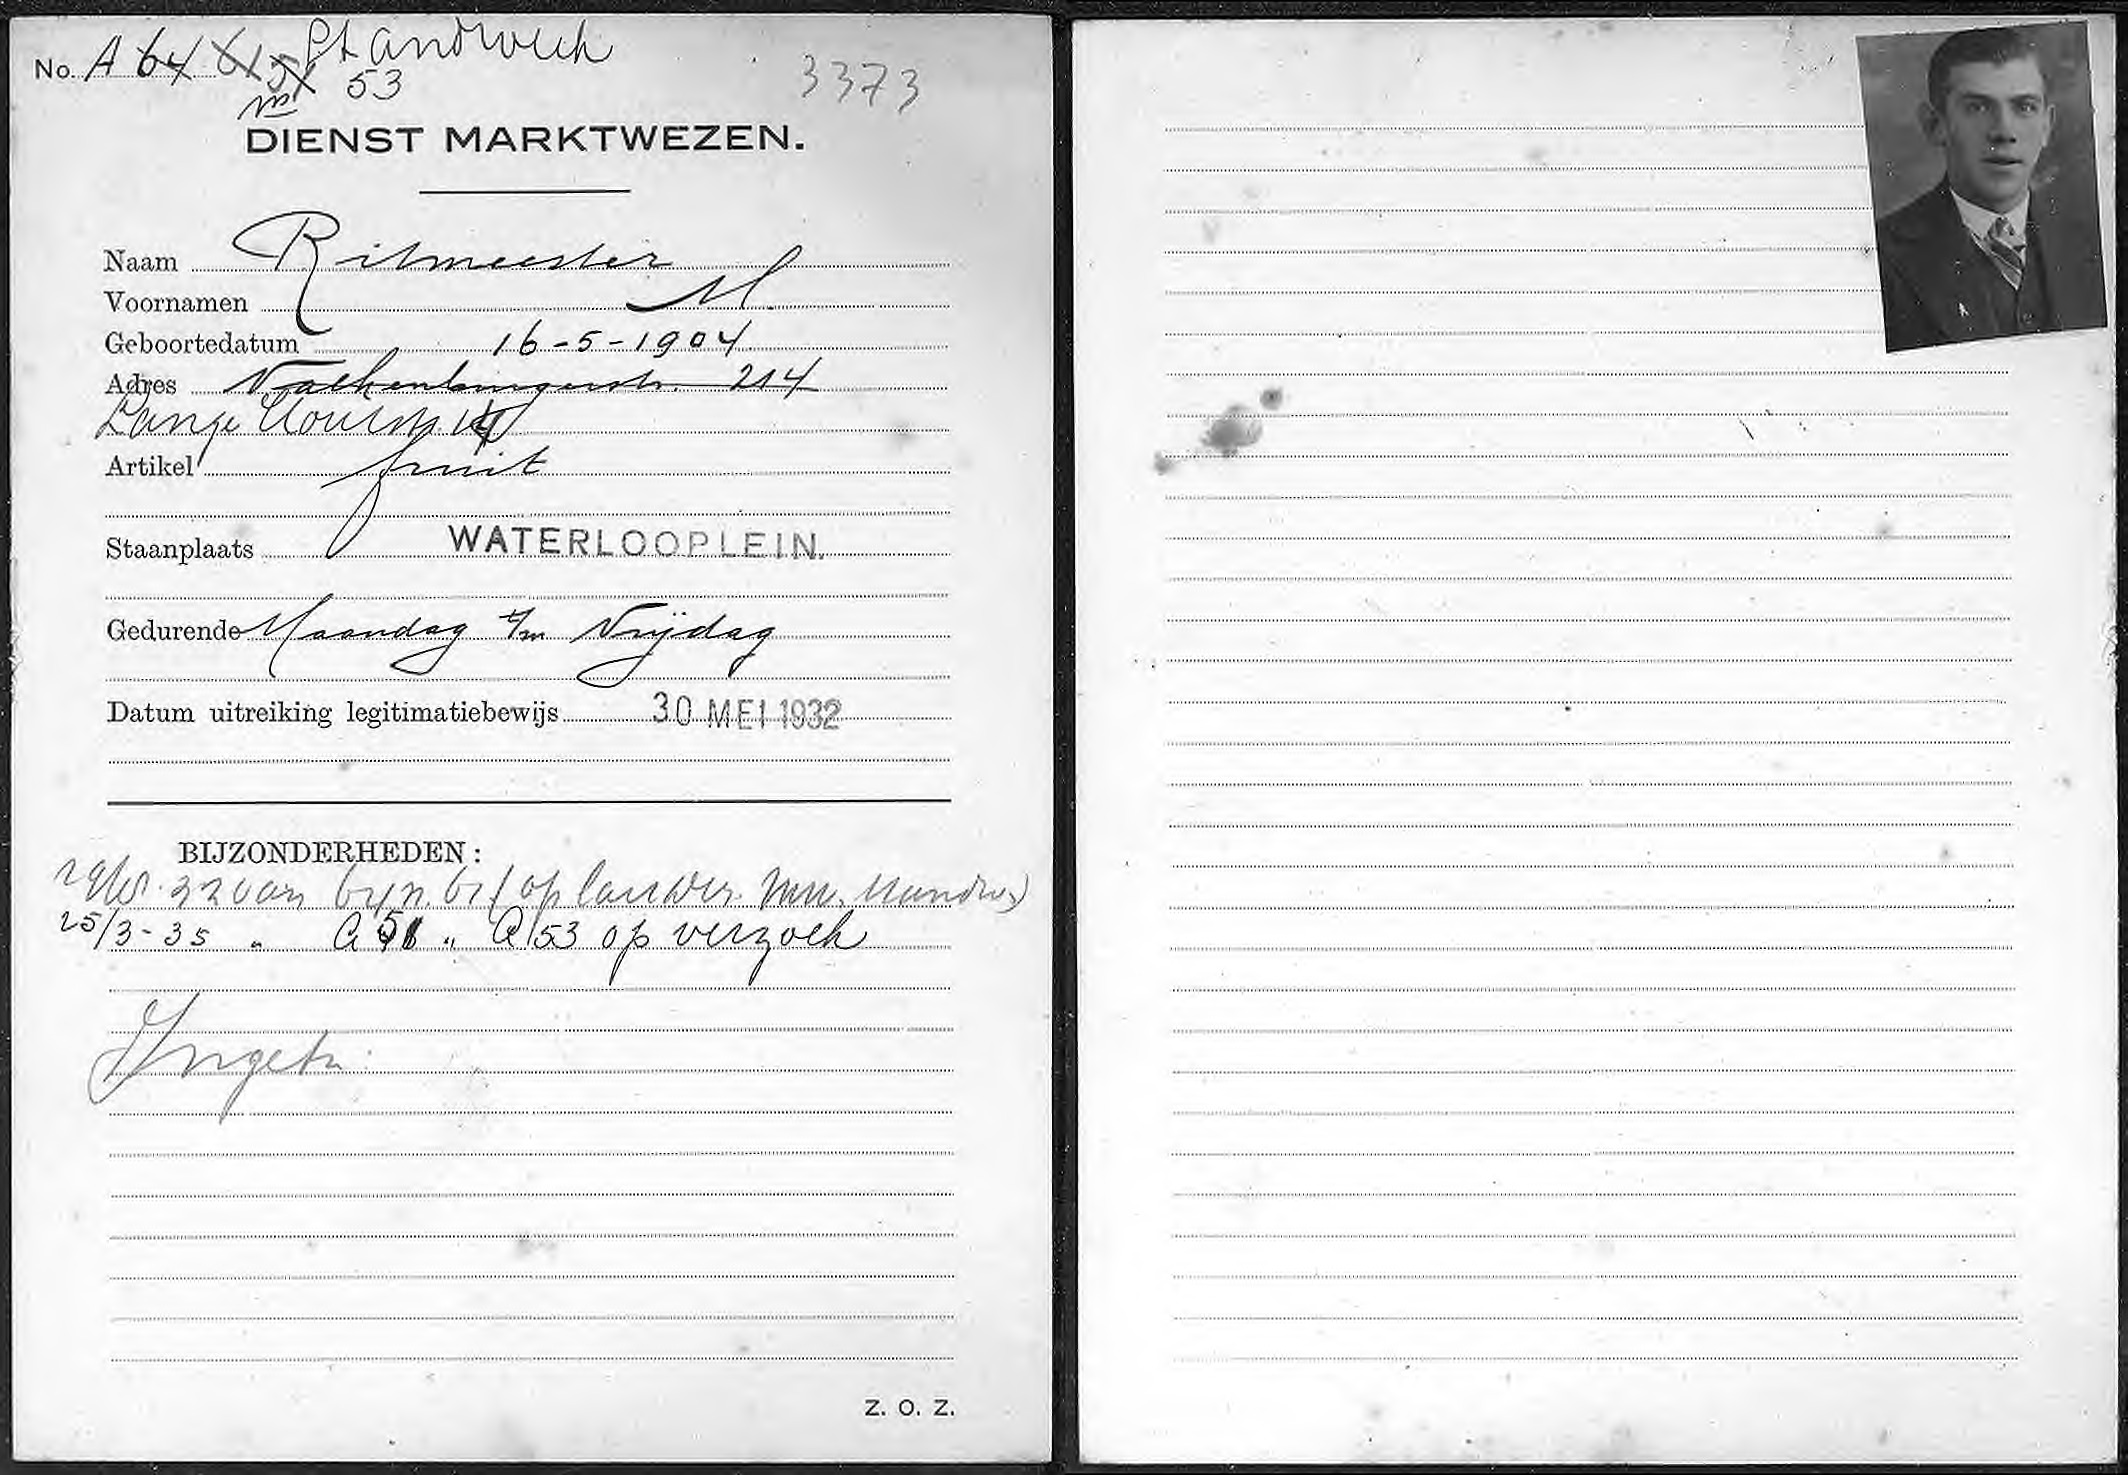 No. A 64 61 51 Standwerk
53
3373
DIENST MARKTWEZEN.
Naam Ritmeester
Voornamen M.
Geboortedatum 16-5-1904
Adres Valkenburgerstr. 214
Lange Houtstr.
Artikel fruit
Staanplaats WATERLOOPLEIN.
Gedurende Maandag t/m Vrijdag
Datum uitreiking legitimatiebewijs 30 MEI 1932
BIJZONDERHEDEN:
32 van op
25/3-35 " A 51 " A 53 op verzoek
Ingetr.
Z. O. Z.